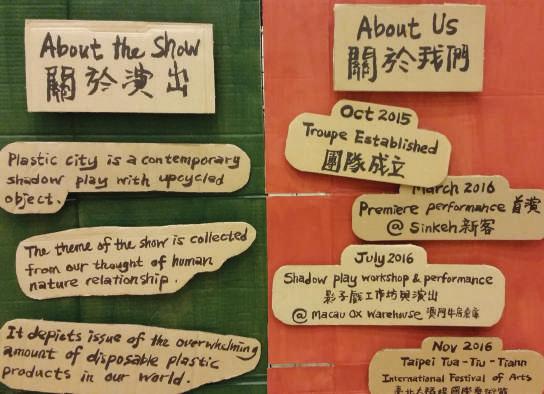 About the Show
關於演出
Plastic city is a contemporary
shadow play with upcycled
object.
The theme of the show is collected
from our thought of human
nature relationship.
It depicts issue of the overwhelming
amount of disposable plastic
products in our world.
About Us
關於我們
Oct 2015
Troupe Established
團隊成立
March 2016
Premiere performance 首演
@ Sinkeh 新客
July 2016
Shadow play workshop & performance
影子戲工作坊與演出
@ Macau Ox Warehouse 澳門牛房倉庫
Nov 2016
Taipei Tua-Tiu-Tiann
International Festival of Arts